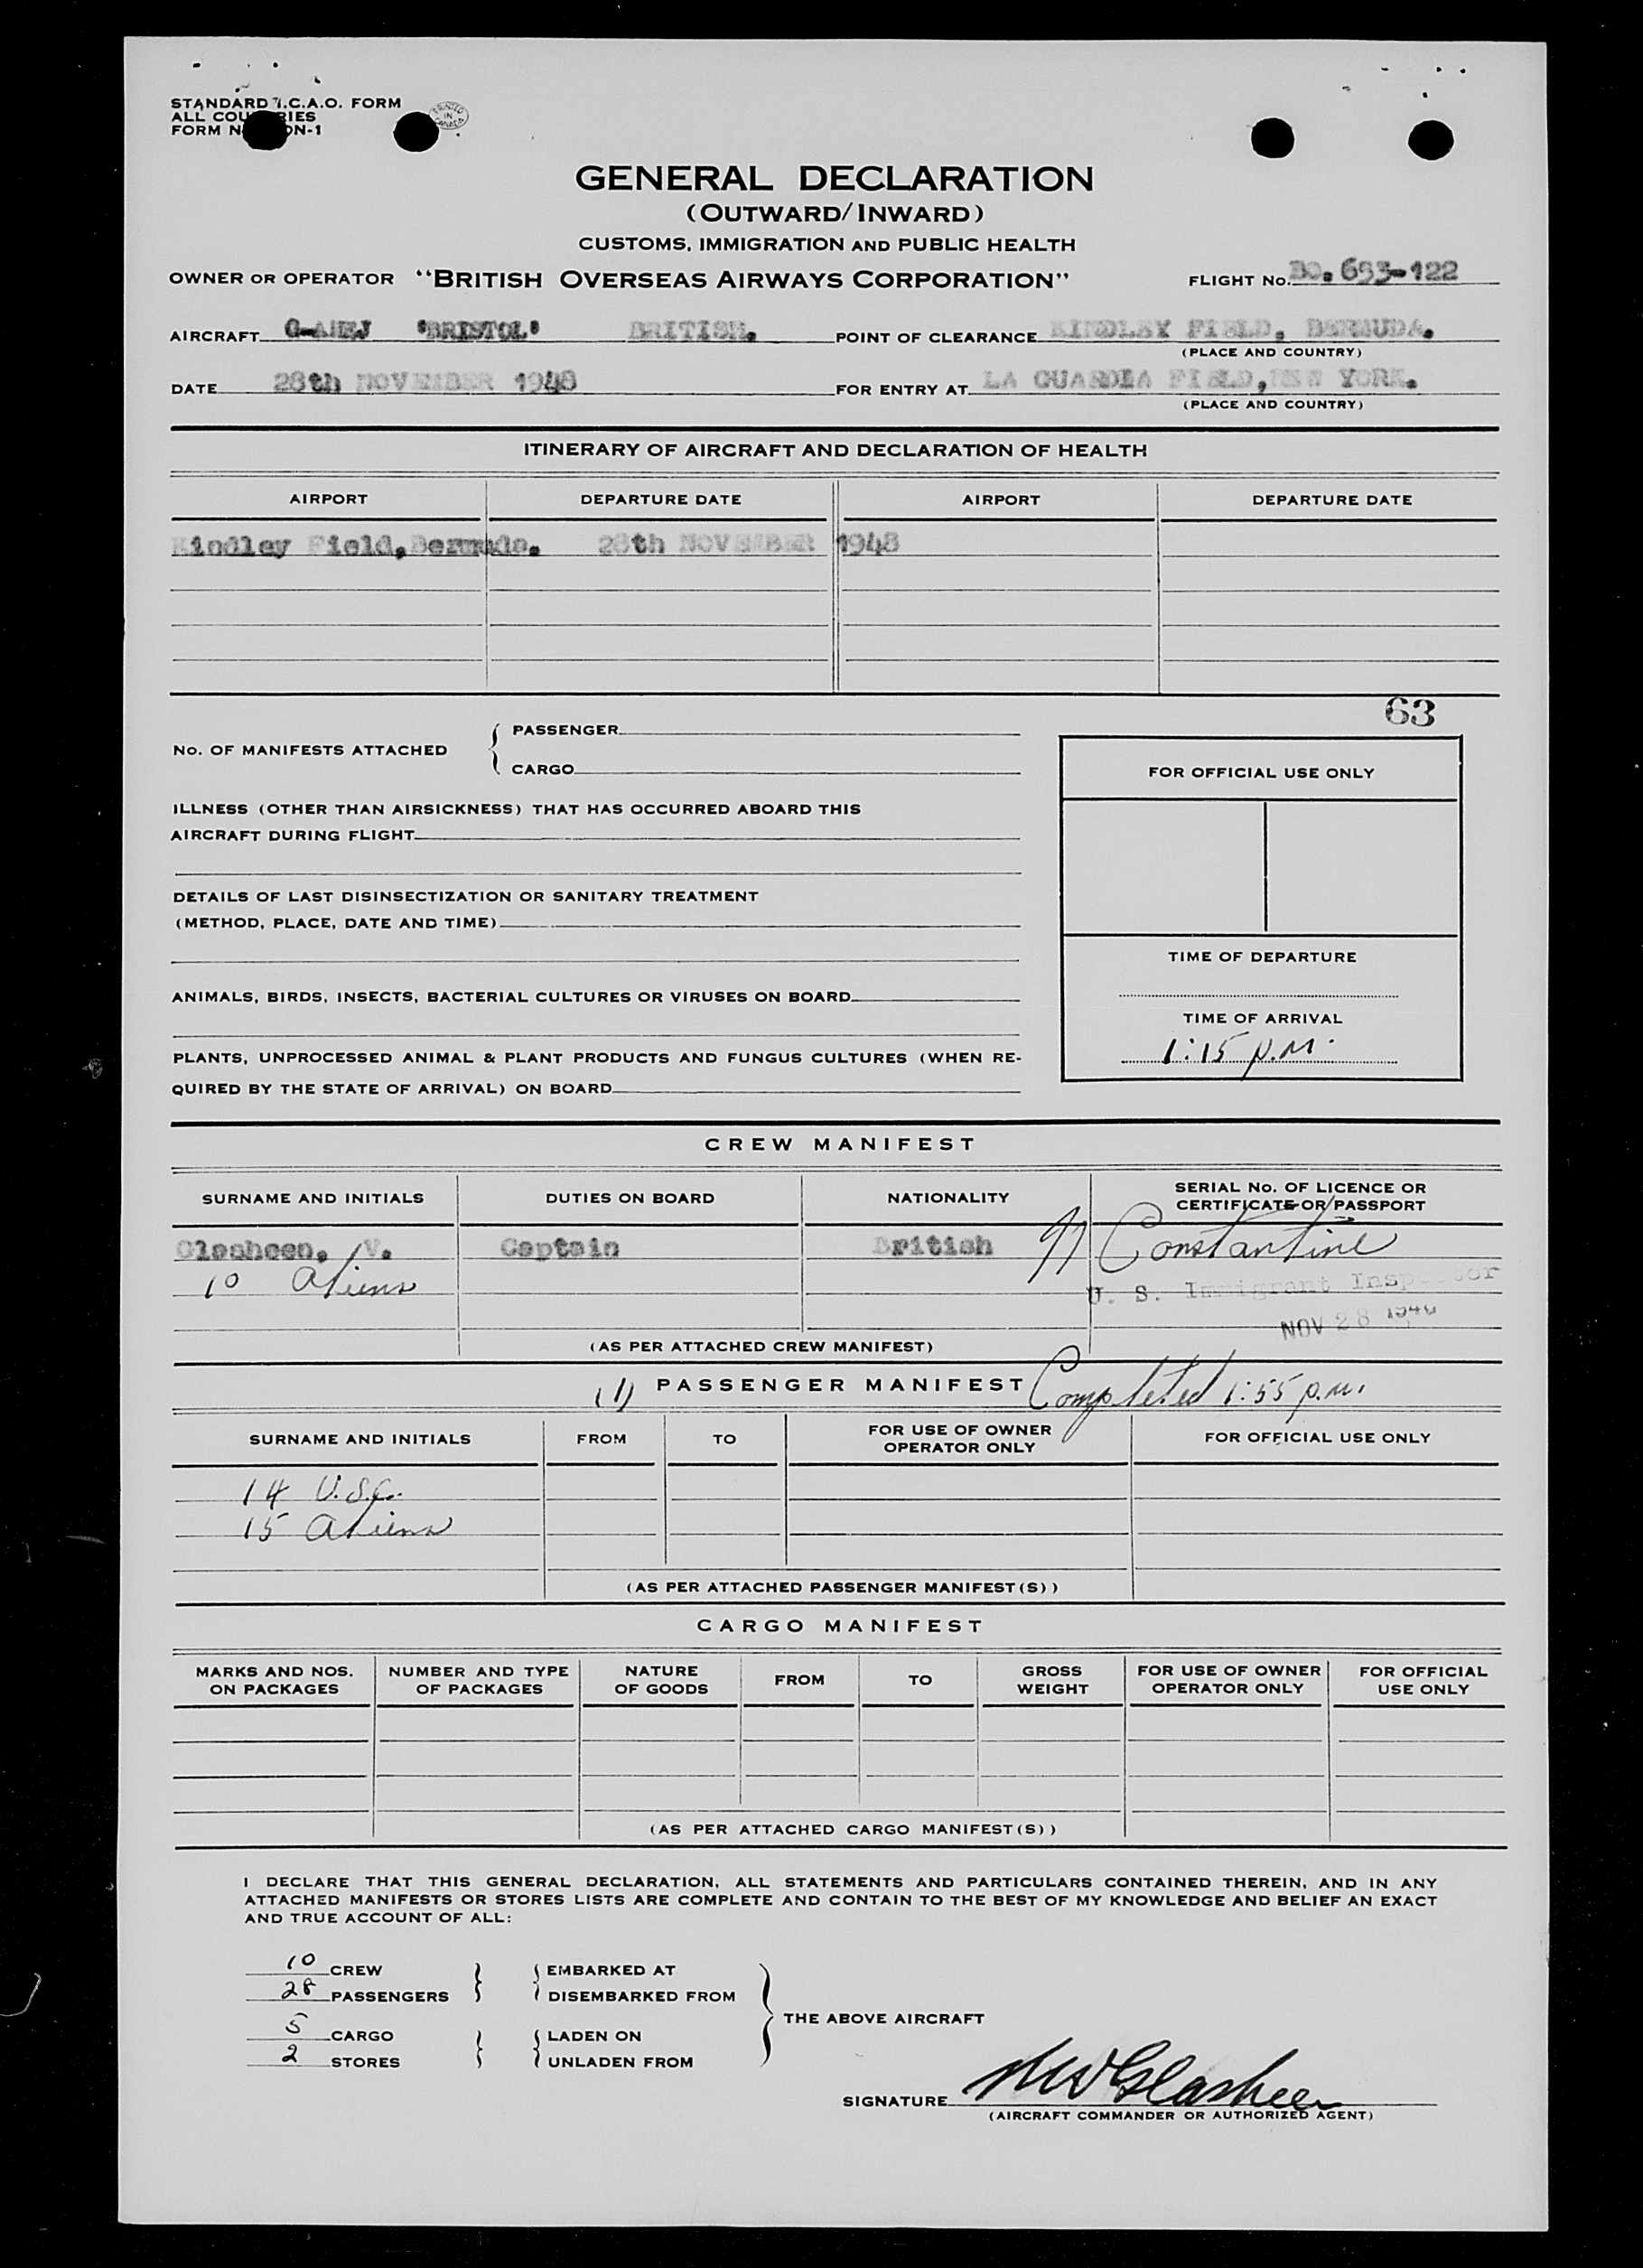 STANDARD I.C.A.O. FORM
ALL COUNTRIES
FORM N ON-1
PRINTED IN CANADA
GENERAL DECLARATION
(OUTWARD/INWARD)
CUSTOMS, IMMIGRATION AND PUBLIC HEALTH
OWNER OR OPERATOR "BRITISH OVERSEAS AIRWAYS CORPORATION" FLIGHT No. BO.693-122
AIRCRAFT G-AHEJ "BRISTOL" BRITISH. POINT OF CLEARANCE KINDLEY FIELD, BERMUDA.
(PLACE AND COUNTRY)
DATE 28th NOVEMBER 1948 FOR ENTRY AT LA GUARDIA FIELD, NEW YORK.
(PLACE AND COUNTRY)
ITINERARY OF AIRCRAFT AND DECLARATION OF HEALTH
AIRPORT DEPARTURE DATE AIRPORT DEPARTURE DATE
Kindley Field, Bermuda. 28th NOVEMBER 1948
63
No. OF MANIFESTS ATTACHED { PASSENGER
CARGO
FOR OFFICIAL USE ONLY
ILLNESS (OTHER THAN AIRSICKNESS) THAT HAS OCCURRED ABOARD THIS
AIRCRAFT DURING FLIGHT
DETAILS OF LAST DISINSECTIZATION OR SANITARY TREATMENT
(METHOD, PLACE, DATE AND TIME)
TIME OF DEPARTURE
ANIMALS, BIRDS, INSECTS, BACTERIAL CULTURES OR VIRUSES ON BOARD
TIME OF ARRIVAL
1:15 p.m.
PLANTS, UNPROCESSED ANIMAL & PLANT PRODUCTS AND FUNGUS CULTURES (WHEN RE-
QUIRED BY THE STATE OF ARRIVAL) ON BOARD
CREW MANIFEST
SURNAME AND INITIALS DUTIES ON BOARD NATIONALITY SERIAL No. OF LICENCE OR
CERTIFICATE OR PASSPORT
Glasheen, V. Captain British Constantine
10 Aliens
U. S. Immigrant Inspector
NOV 28 1948
(AS PER ATTACHED CREW MANIFEST)
(1) PASSENGER MANIFEST Completed 1:55 p.m.
SURNAME AND INITIALS FROM TO FOR USE OF OWNER
OPERATOR ONLY FOR OFFICIAL USE ONLY
14 U.S.C.
15 Aliens
(AS PER ATTACHED PASSENGER MANIFEST(S))
CARGO MANIFEST
MARKS AND NOS.
ON PACKAGES NUMBER AND TYPE
OF PACKAGES NATURE
OF GOODS FROM TO GROSS
WEIGHT FOR USE OF OWNER
OPERATOR ONLY FOR OFFICIAL
USE ONLY
(AS PER ATTACHED CARGO MANIFEST(S))
I DECLARE THAT THIS GENERAL DECLARATION, ALL STATEMENTS AND PARTICULARS CONTAINED THEREIN, AND IN ANY
ATTACHED MANIFESTS OR STORES LISTS ARE COMPLETE AND CONTAIN TO THE BEST OF MY KNOWLEDGE AND BELIEF AN EXACT
AND TRUE ACCOUNT OF ALL:
10 CREW EMBARKED AT
28 PASSENGERS DISEMBARKED FROM
THE ABOVE AIRCRAFT
5 CARGO LADEN ON
2 STORES UNLADEN FROM
SIGNATURE Glasheen
(AIRCRAFT COMMANDER OR AUTHORIZED AGENT)